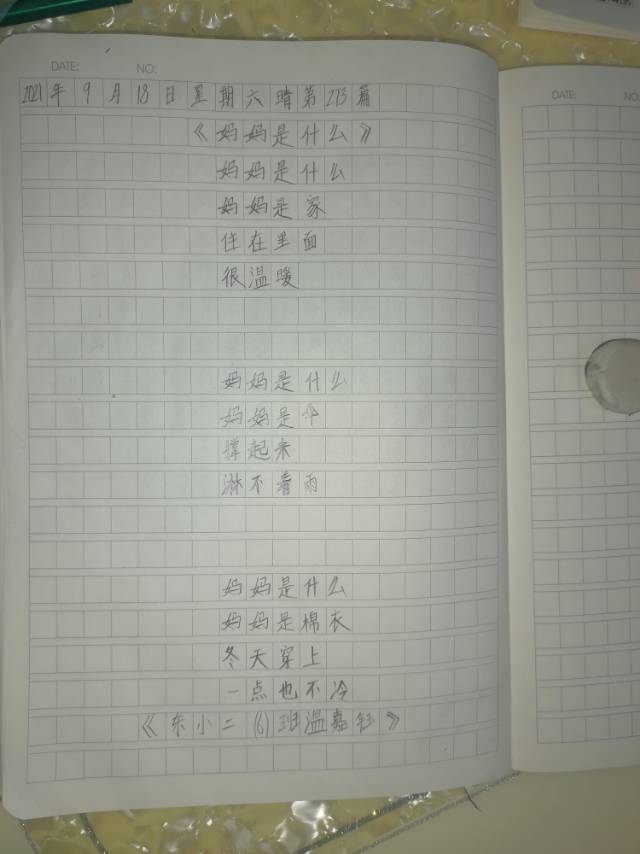 DATE: NO:
2021年9月18日星期六晴第273篇
《妈妈是什么》
妈妈是什么
妈妈是家
住在里面
很温暖
妈妈是什么
妈妈是伞
撑起来
淋不着雨
妈妈是什么
妈妈是棉衣
冬天穿上
一点也不冷
《东小二(6)班温嘉钰》
DATE: NO: